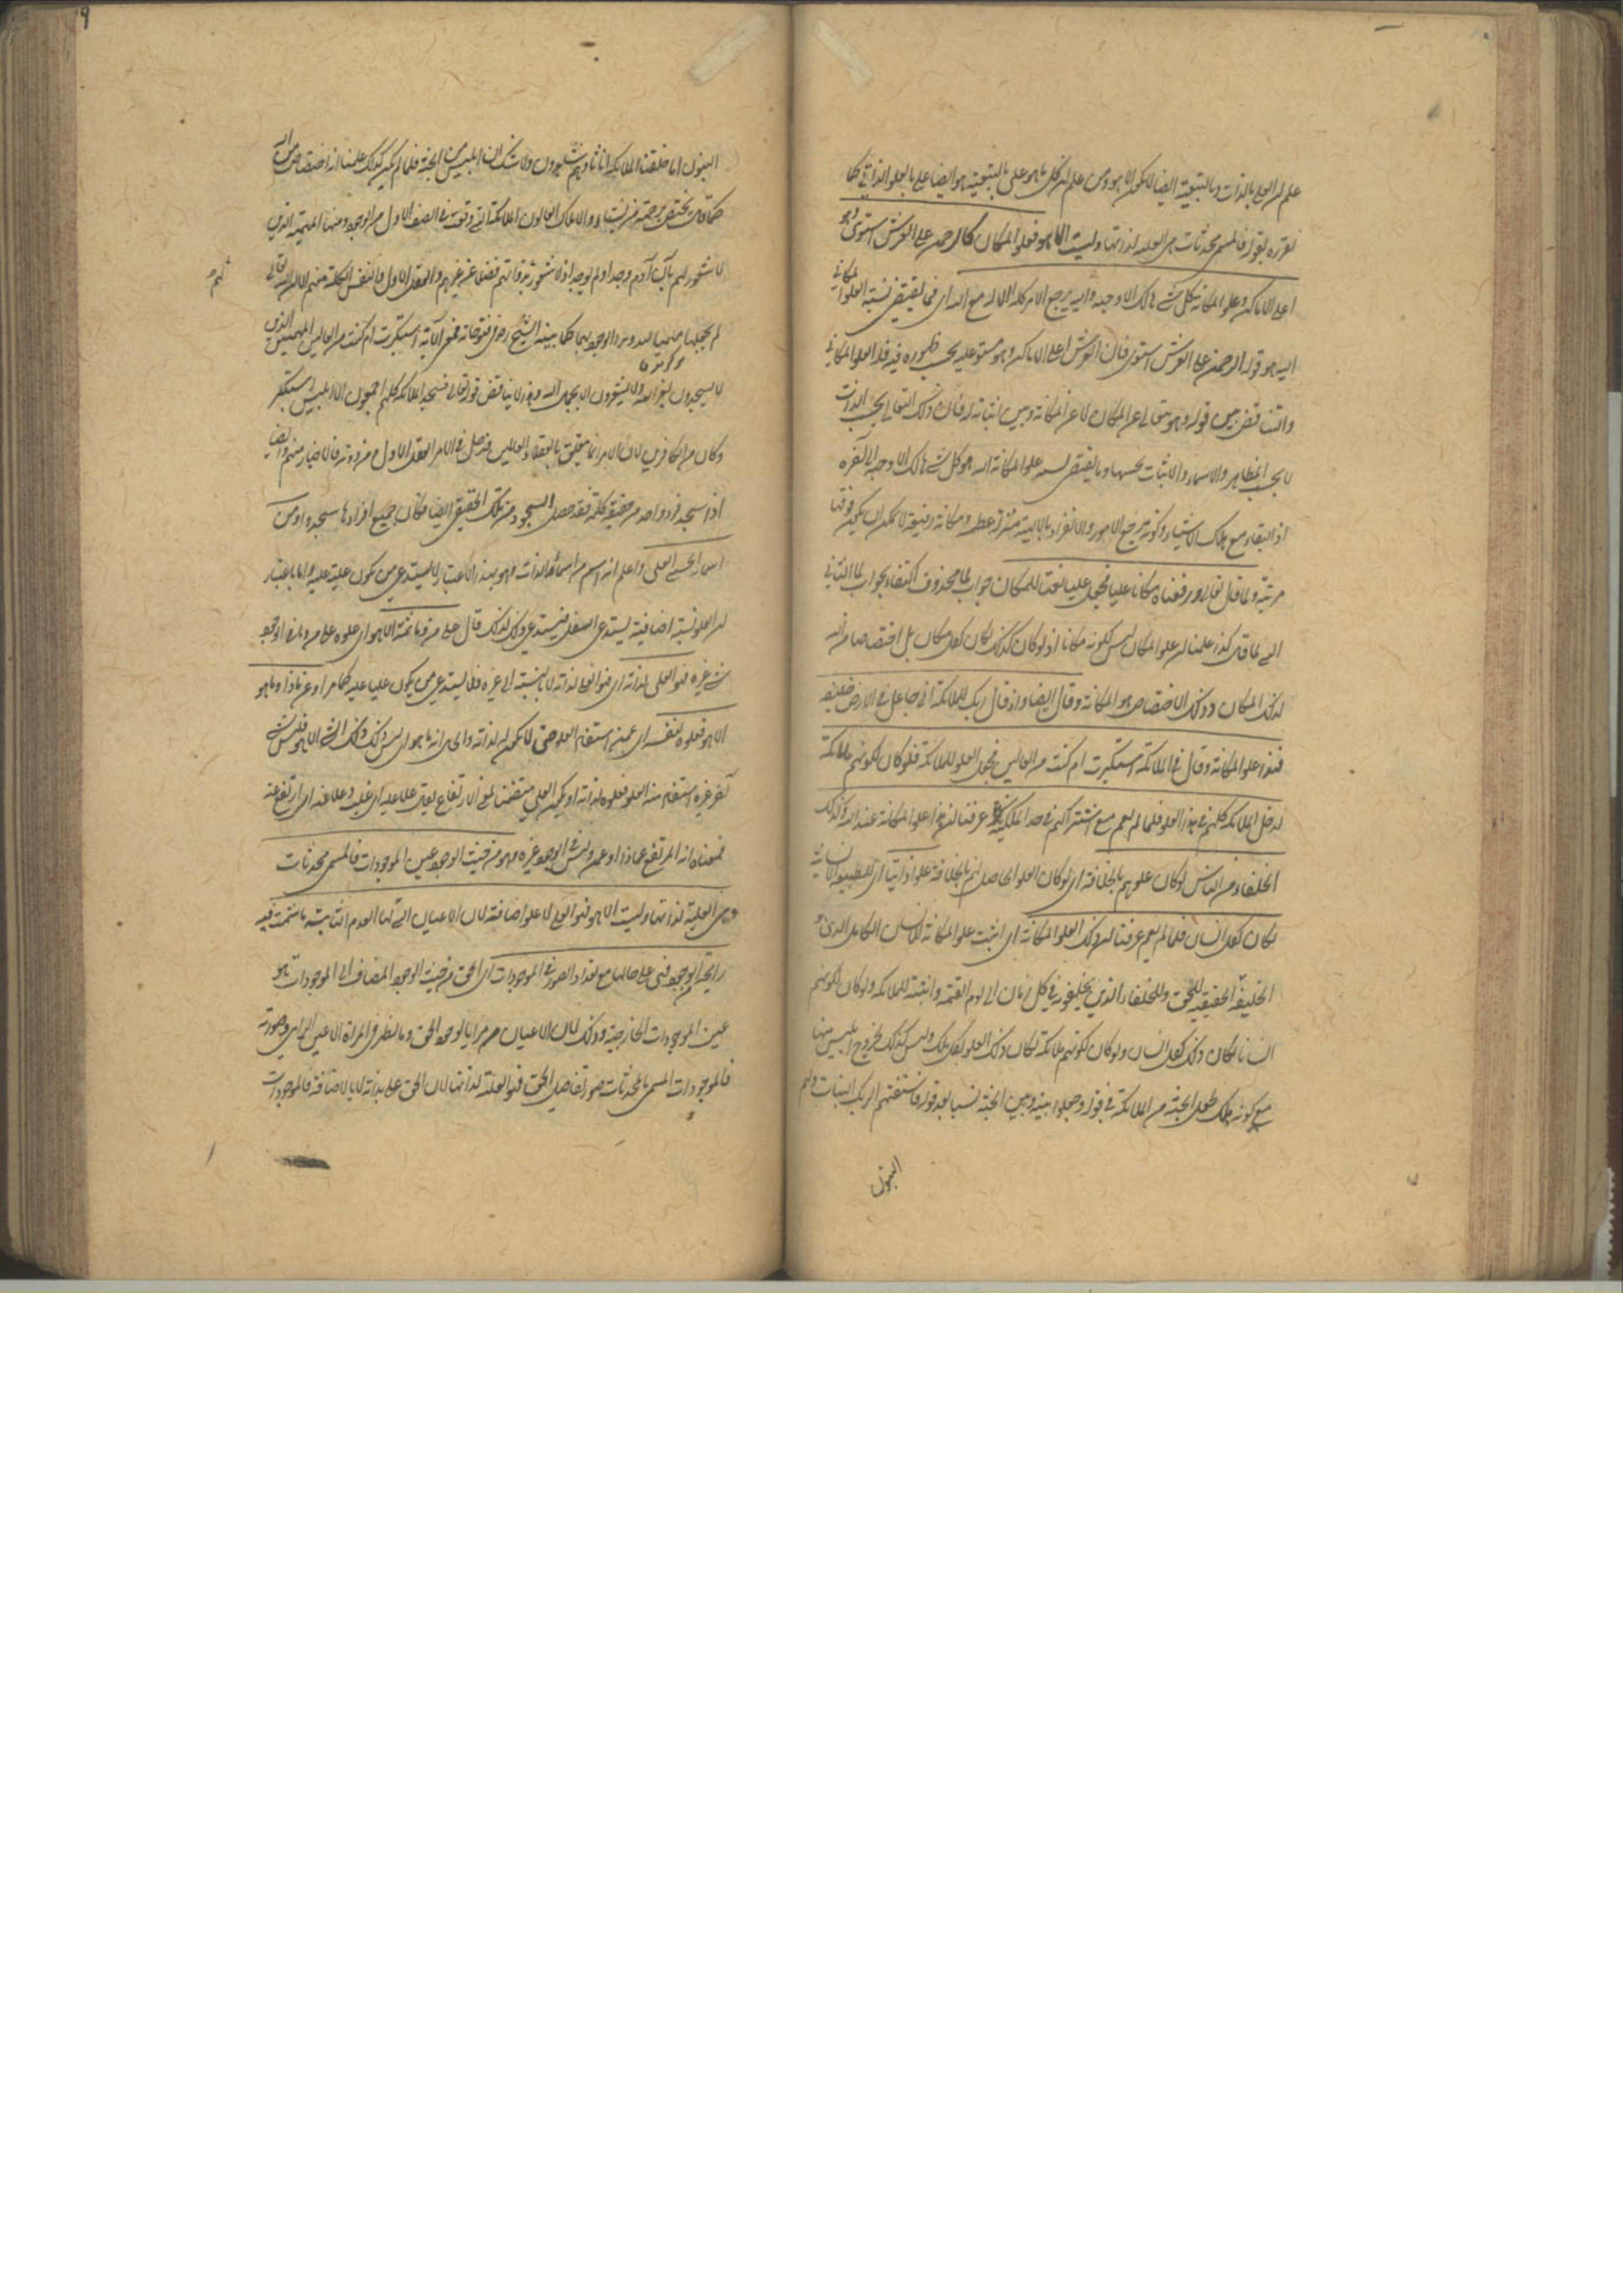 علم ان العلي بالذات وبالتبعية ايضا لا يكون الا هو ومن علم ان كل ما هو علي بالتبعية هو ايضا علي بالعلو الذاتي كما
نقرره بقوله فالمسمى محدثات هي العلية لذاتها وليست الا هو فعلو المكان كالرحمن على العرش استوى وهو
اعلى الاماكن وعلو المكانة كل شئ هالك الا وجهه واليه يرجع الامر كله االه مع الله اى فما يقتضى نسبة العلو المكاني
اليه هو قوله الرحمن على العرش استوى فان العرش اعلى الاماكن وهو مستو عليه بحسب ظهوره فيه فله العلو المكاني
والتناقض بين قوله وهو يتعالى عن المكان لا عن المكانة وبين اثباته له فان ذلك التعالي بحسب الذات
لا بحسب المظاهر والاسماء والاثبات بحسبها وما يقتضى نسبة علو المكانة اليه هو كل شئ هالك الا وجهه الى آخره
اذ البقاء مع هلاك الاشياء وكونه مرجع الامور والانفراد بالالهية منزلة عظيمة ومكانة رفيعة لا يمكن ان يكون فوقها
مرتبة ولما قال تعالى ورفعناه مكانا عليا فجعل عليا نعتا للمكان جواب لما محذوف اكتفاء بجواب لما الثاني
اى لما قال كذا علمنا ان علو المكان ليس لكونه مكانا اذ لو كان كذلك لكان لكل مكان بل اختصاصا من الله
لذلك المكان وذلك الاختصاص هو المكانة وقال ايضا واذ قال ربك للملائكة انى جاعل فى الارض خليفة
فهذا علو المكانة وقال فى الملائكة استكبرت ام كنت من العالين فجعل العلو للملائكة فلو كان لكونهم ملائكة
لدخل الملائكة كلهم فى هذا العلو فلما لم يعم مع اشتراكهم فى حد الملائكة عرفنا ان هذا علو المكانة عند الله وكذلك
الخلفاء من الناس لو كان علوهم بالخلافة اى لو كان العلو الحاصل لهم بالخلافة علوا ذاتيا اى للطبيعة الانسانية
لكان لكل انسان فلما لم يعم عرفنا ان ذلك العلو للمكانة اى اثبت علو المكانة للانسان الكامل الذى هو
الخليفة الحقيقية للحق وللخلفاء الذين يخلفونه فى كل زمان الى يوم القيمة واثبته للملائكة ولو كان لكونهم
اناسا لكان ذلك لكل انسان ولو كان لكونهم ملائكة لكان ذلك العلو لكل ملك وليس كذلك لخروج ابليس منها
مع كونه ملكا لجعل الجنة من الملائكة فى قوله وجعلوا بينه وبين الجنة نسبا بعد قوله فاستفتهم الربك البنات ولهم
البنون
البنون ام خلقنا الملائكة اناثا وهم شاهدون ولا شك ان ابليس من الجنة فلما لم يكن كذلك علمنا انه اختصاص من الله
كما قال يختص برحمته من يشاء والاملاك العالون الملائكة التي وقعت فى الصف الاول من الوجود ومنها المهيمة الذين
لا شعور لهم بان آدم وجد او لم يوجد اذ لا شعور بذواتهم فضلا عن غيرهم والعقل الاول والنفس الكلية منهم الا ان الله تعالى
لم يجعلها مهيميا لتدوين الوجود بهما كما بينه الشيخ رض فى فتوحاته فمعنى الآية استكبرت ام كنت من العالين المهيمين الذين
لا يسجدون لغير الله ولا يشعرون الا بجمال الله وهذا لا يناقض قوله تعالى فسجد الملائكة كلهم اجمعون الا ابليس استكبر
وكان من الكافرين لان الامر انما يتعلق بالعقلاء العالمين فدخل فى الامر العقل الاول ومن دونه فالاخبار منهم وايضا
اذا سجد فرد واحد من حقيقة كلية فقد حصل السجود من تلك الحقيقة ايضا فكان جميع افرادها سجدوا ومن
اسمائه الحسنى العلي واعلم انه اسم من اسماء الذات وهو بهذا الاعتبار لا يستدعى من يكون عليا عليه واما باعتبار
ان العلو نسبة اضافية يستدعى السفل فيستدعى ذلك لذلك قال على من وما ثمة الا هو اى علوه على من وليس فى الوجود
شئ غيره فهو العلي لذاته اى فهو العلي لذاته لا بالنسبة الى غيره فلا يستدعى من يكون عليا عليه كما مر او عن ماذا وما هو
الا هو فعلوه لنفسه اى عمن استفاد العلو حتى لا يكون له لذاته والحال انه ما هو اى ليس ذلك الشئ الا هو فليس شئ
آخر غيره استفاد منه العلو فعلوه لذاته او يكون العلي متضمنا لمعنى الارتفاع يقال علا عليه اى غلبه وعلا عنه اى ارتفع عنه
فمعناه انه المرتفع عماذا او عمن وليس فى الوجود غيره وهو من حيث الوجود عين الموجودات فالمسمى محدثات
هى العلية لذاتها وليست الا هو فهو العلي لا علو اضافة لان الاعيان التى لها العدم الثابتة ما شمت فيه
رايحة الوجود فهى على حالها مع تعداد الصور فى الموجودات اى الحق من حيث الوجود المضاف الى الموجودات هو
عين الموجودات الخارجية وذلك لان الاعيان مرايا لوجود الحق وما يظهر فى المرآة الا عين الرائى وصورته
فالموجودات المسمى بالمحدثات صور تفاصيل الحق فهى العلية لذاتها لان الحق على بذاته لا بالاضافة فالموجودات